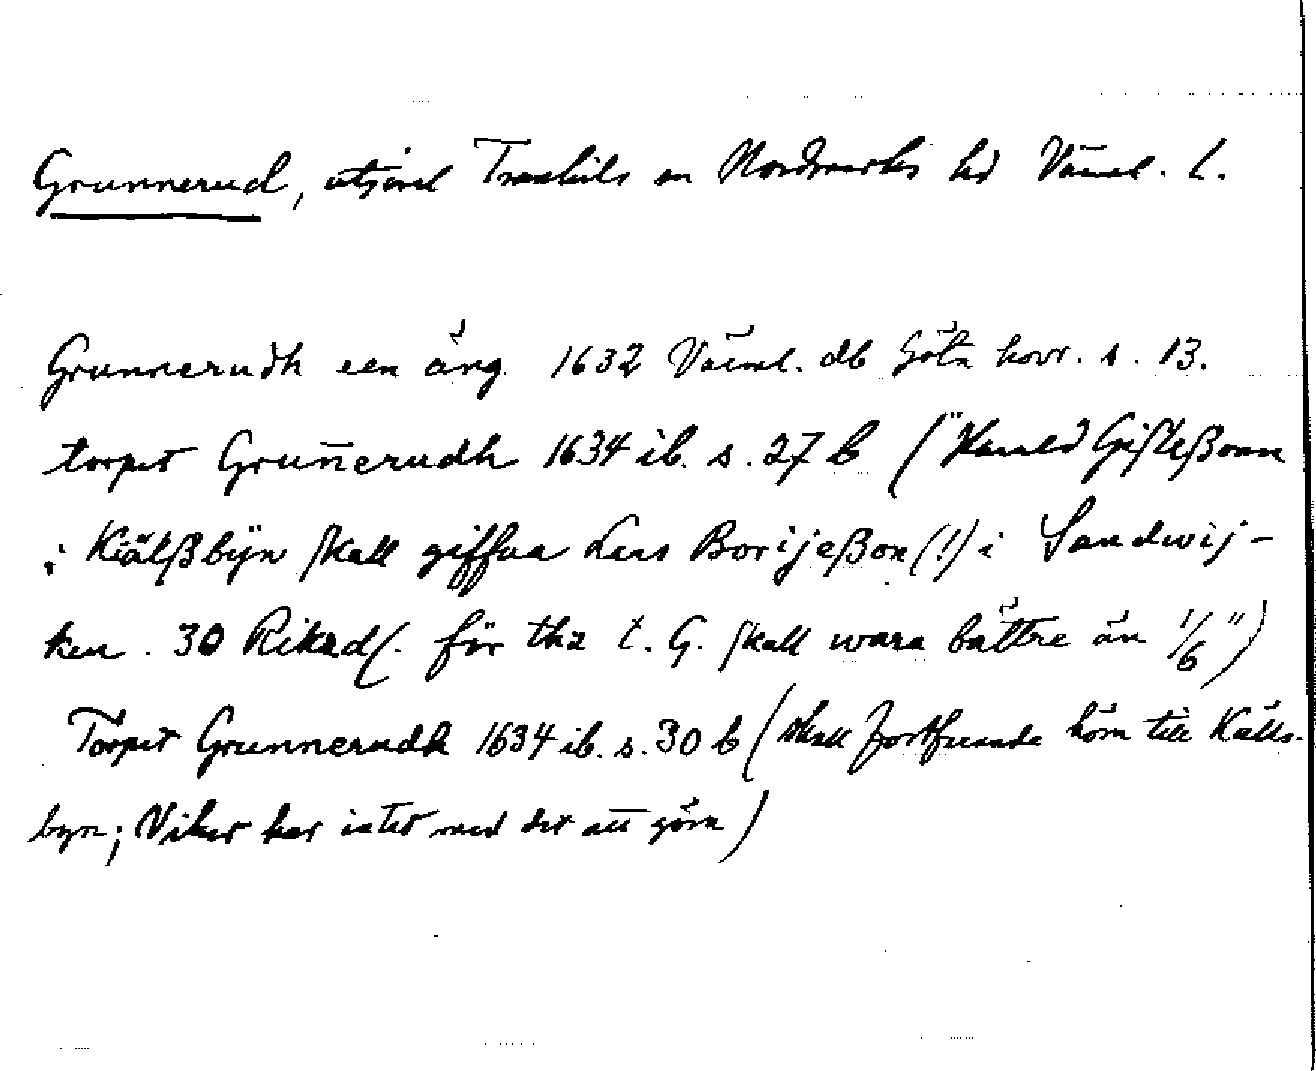 Grunnerud, utjord Trankils sn Nordmarks hd Värml. l.
Grunnerudh een äng 1632 Värml. db Göta hovr. s. 13.
torpet Grun̄erudh 1634 ib. s. 27 b ("Harald Gisleßonn
i Kiälßbÿn skall giffua Lars Borijeßon (!) i Sandwij-
ken . 30 Rikzd. för thz t. G. skall wara bättre än 1/6")
Torpet Grunnerudh 1634 ib. s. 30 b (skall fortfarande höra till Källs-
byn; Viker har intet med det att göra)